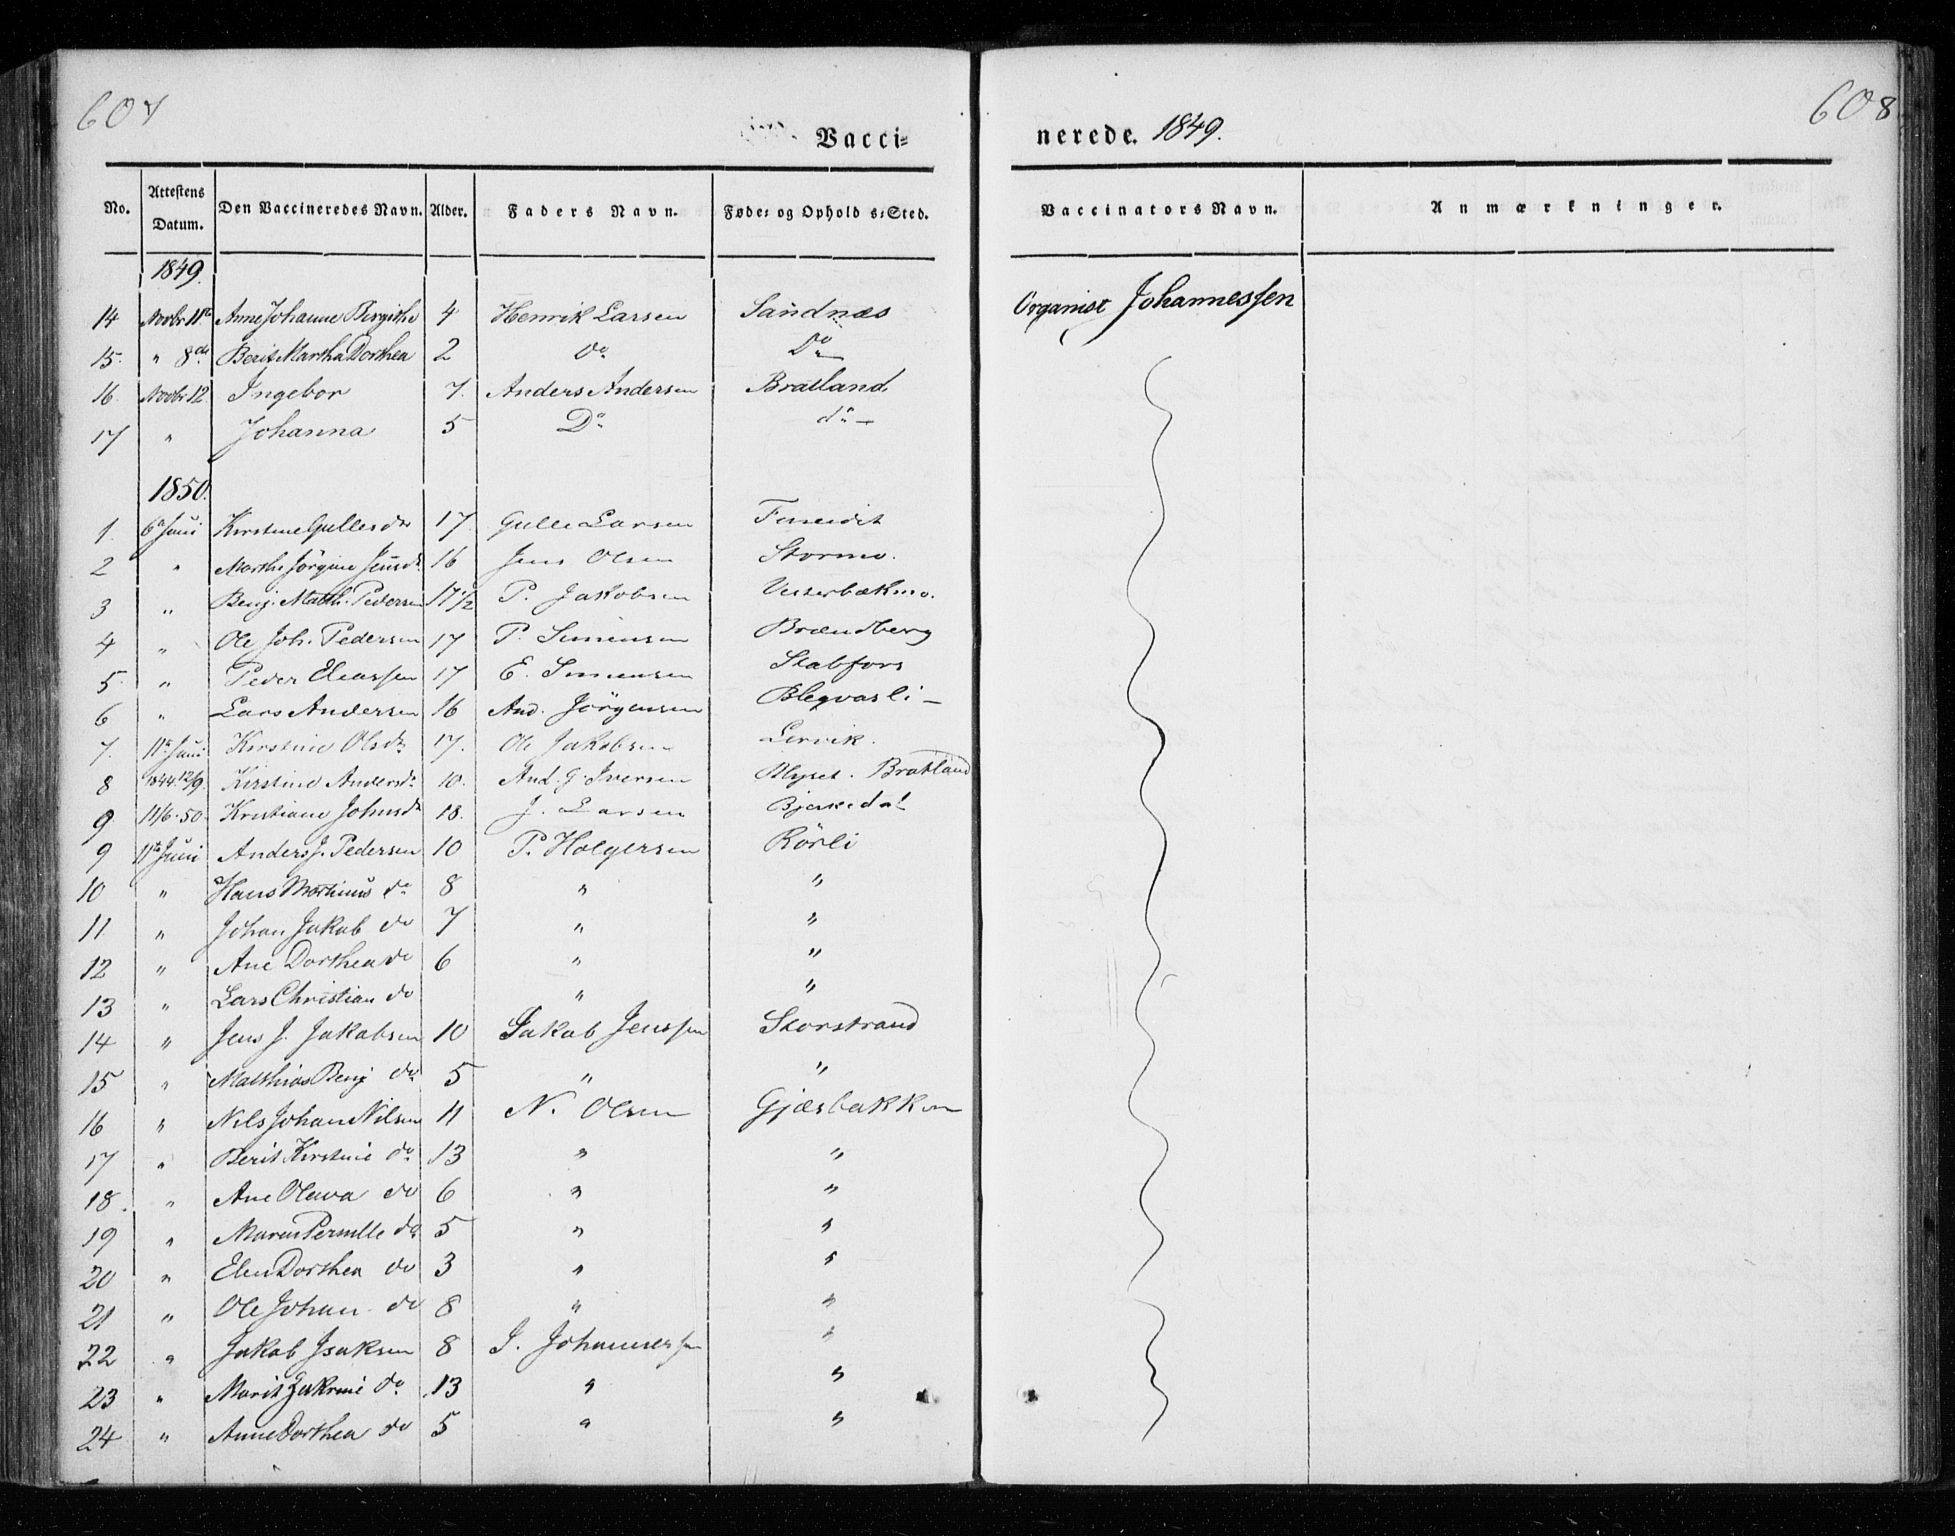 607
608
Vacci=
nerede. 1849.
No. Attestens Datum. Den Vaccineredes Navn. Alder. Faders Navn. Føde= og Ophold s=Sted. Vaccinators Navn. Anmærkninger.
1849.
14 Novbr 11te Anne Johanne Birgithe 4 Henrik Larsen Sandnæs Organist Johannessen
15. " 8de Berit Martha Dorthea 2 do Do
16. Novbr 12 Ingebor 7. Anders Andersen Bratland
17 " Johanna 5 Do do
1850.
1. 6te Juni Kirstine Gullesdr 17. Gulle Larsen
2 " Marthe Jörgine Jensdr 16 Jens Olsen Stormo.
3 " Benj. Matth. Pedersen 17 1/2 P. Jakobsen Vesterbækmo.
4 " Ole Joh. Pedersen 17 P. Simensen Brændberg
5. " Peder Eliassen 17 E. Simensen Stabfors
6 " Lars Andersen 16 And. Jörgensen Bleqvasli
7. 11te Juni Kirstine Olsdr 17. Ole Jakobsen Lervik.
8 1844 12/9 Kirstine Andersdr 10. And. G. Iversen Bratland
9. 11/6-50 Kristiane Johnsdr 18. J. Larsen Bjerkedal
9 11te Juni Anders J. Pedersen 10 P. Holgersen Rörli
10 " Hans Martinus do 8 " "
11 " Johan Jakob do 7 " "
12 " Ane Dorthea do 6 " "
13 " Lars Christian do " "
14 " Jens J. Jakobsen 10 Jakob Jenssen Storstrand
15 " Matthias Benj do 5 " "
16 " Nils Johan Nilsen 11 N. Olsen Gjæsbakken
17 " Berit Kirstine do 13 " "
18. " Ane Olava do 6 " "
19 " Maren Pernille do 5 " "
20 " Elen Dorthea do 3 " "
21 " Ole Johan do 8 " "
22 " Jakob Isaksen 8 I. Johannessen "
23 " Marit do 13 " "
24 " Anne Dorthea do 5 " "